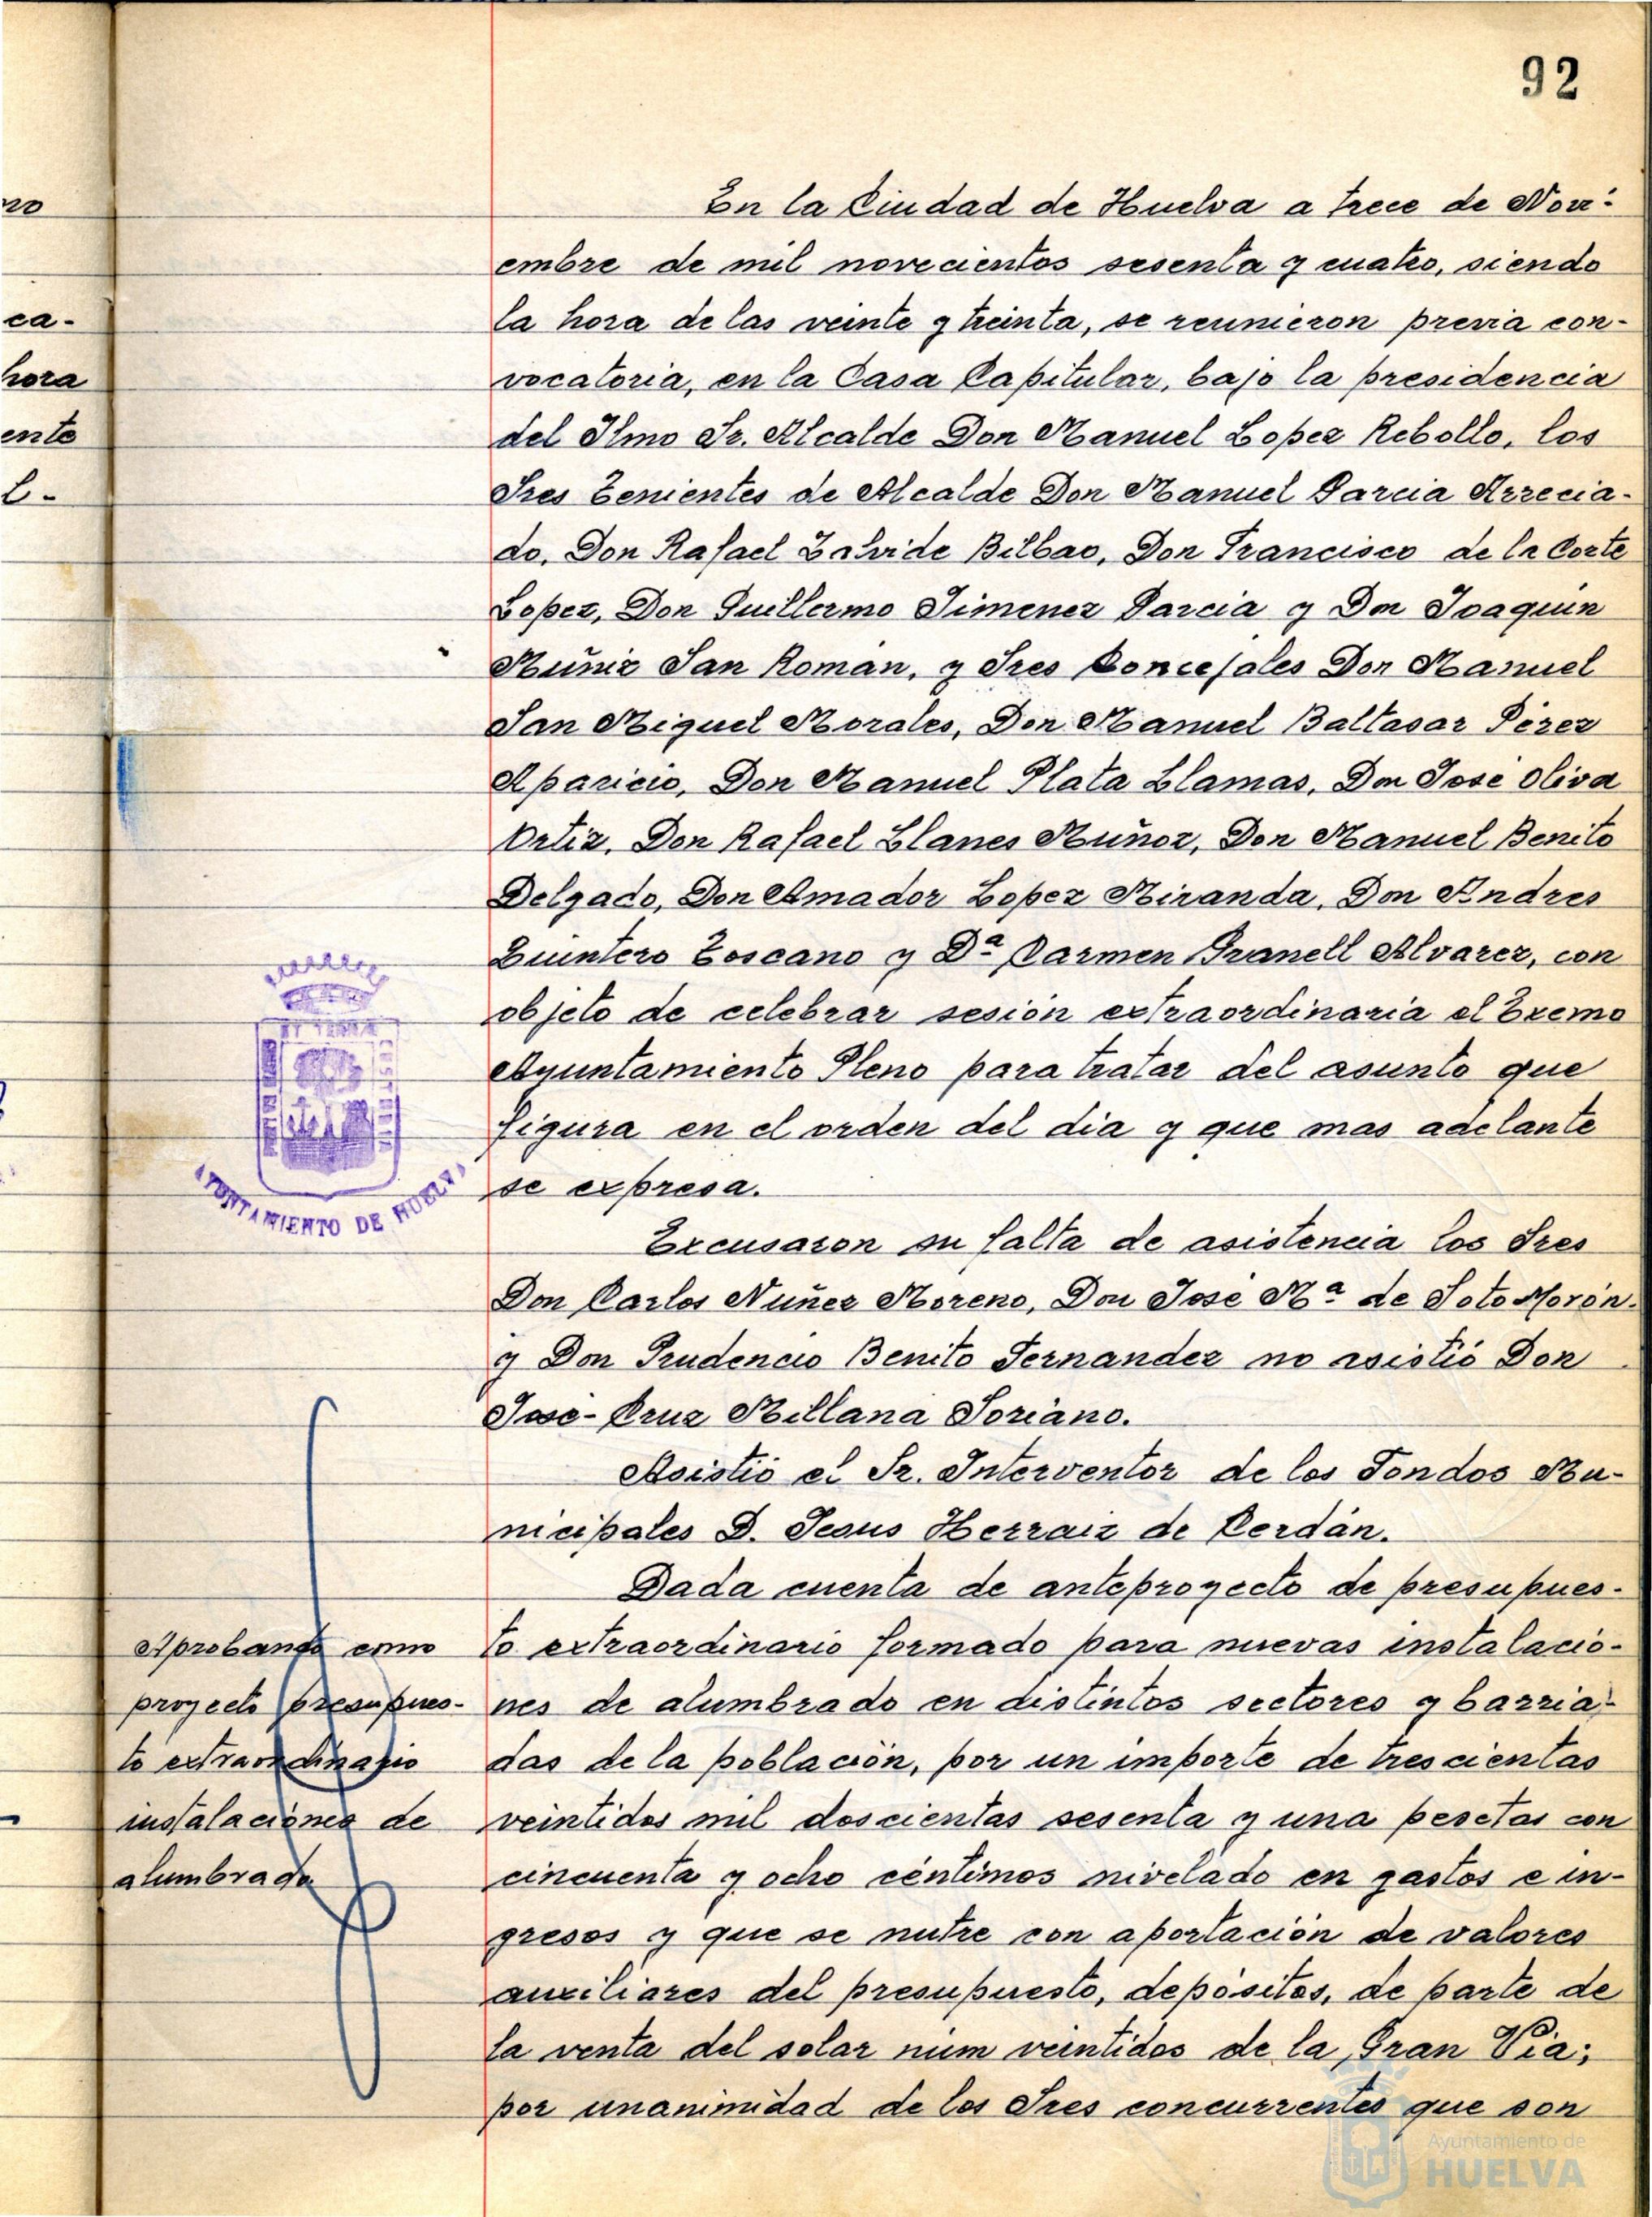 92
no
ca-
hora
ente
l-
En la Ciudad de Huelva a trece de Novi-
embre de mil novecientos sesenta y cuatro, siendo
la hora de las veinte y treinta, se reunieron previa con-
vocatoria, en la Casa Capitular, bajo la presidencia
del Ilmo Sr. Alcalde Don Manuel Lopez Rebollo, los
Sres Tenientes de Alcalde Don Manuel Garcia Arrecia-
do, Don Rafael Zalvide Bilbao, Don Francisco de la Corte
Lopez, Don Guillermo Jimenez Garcia y Don Joaquin
Muñiz San Roman, y Sres Concejales Don Manuel
San Miguel Morales, Don Manuel Baltasar Pérez
Aparicio, Don Manuel Plata Llamas, Don Jose Oliva
Ortiz, Don Rafael Llanes Muñoz, Don Manuel Benito
Delgado, Don Amador Lopez Miranda, Don Andres
Quintero Toscano y Dª Carmen Granell Alvarez, con
objeto de celebrar sesión extraordinaria el Excmo
Ayuntamiento Pleno para tratar del asunto que
figura en el orden del dia y que mas adelante
se expresa.
AYUNTAMIENTO DE HUELVA
Excusaron su falta de asistencia los Sres
Don Carlos Nuñez Moreno, Don Jose Mª de Soto Morón.
y Don Prudencio Benito Fernandez no asistió Don
José-Cruz Millana Soriano.
Asistió el Sr. Interventor de los Fondos Mu-
nicipales D. Jesus Herraiz de Cerdán.
Dada cuenta de anteproyecto de presupues-
to extraordinario formado para nuevas instalacio-
nes de alumbrado en distintos sectores y barria-
das de la población, por un importe de trescientas
veintidos mil doscientas sesenta y una pesetas con
cincuenta y ocho céntimos nivelado en gastos e in-
gresos y que se nutre con aportación de valores
auxiliares del presupuesto, depósitos, de parte de
la venta del solar núm veintidos de la Gran Via;
por unanimidad de los Sres concurrentes que son
Aprobando como
proyecto presupues-
to extraordinario
instalaciones de
alumbrado
Ayuntamiento de
HUELVA